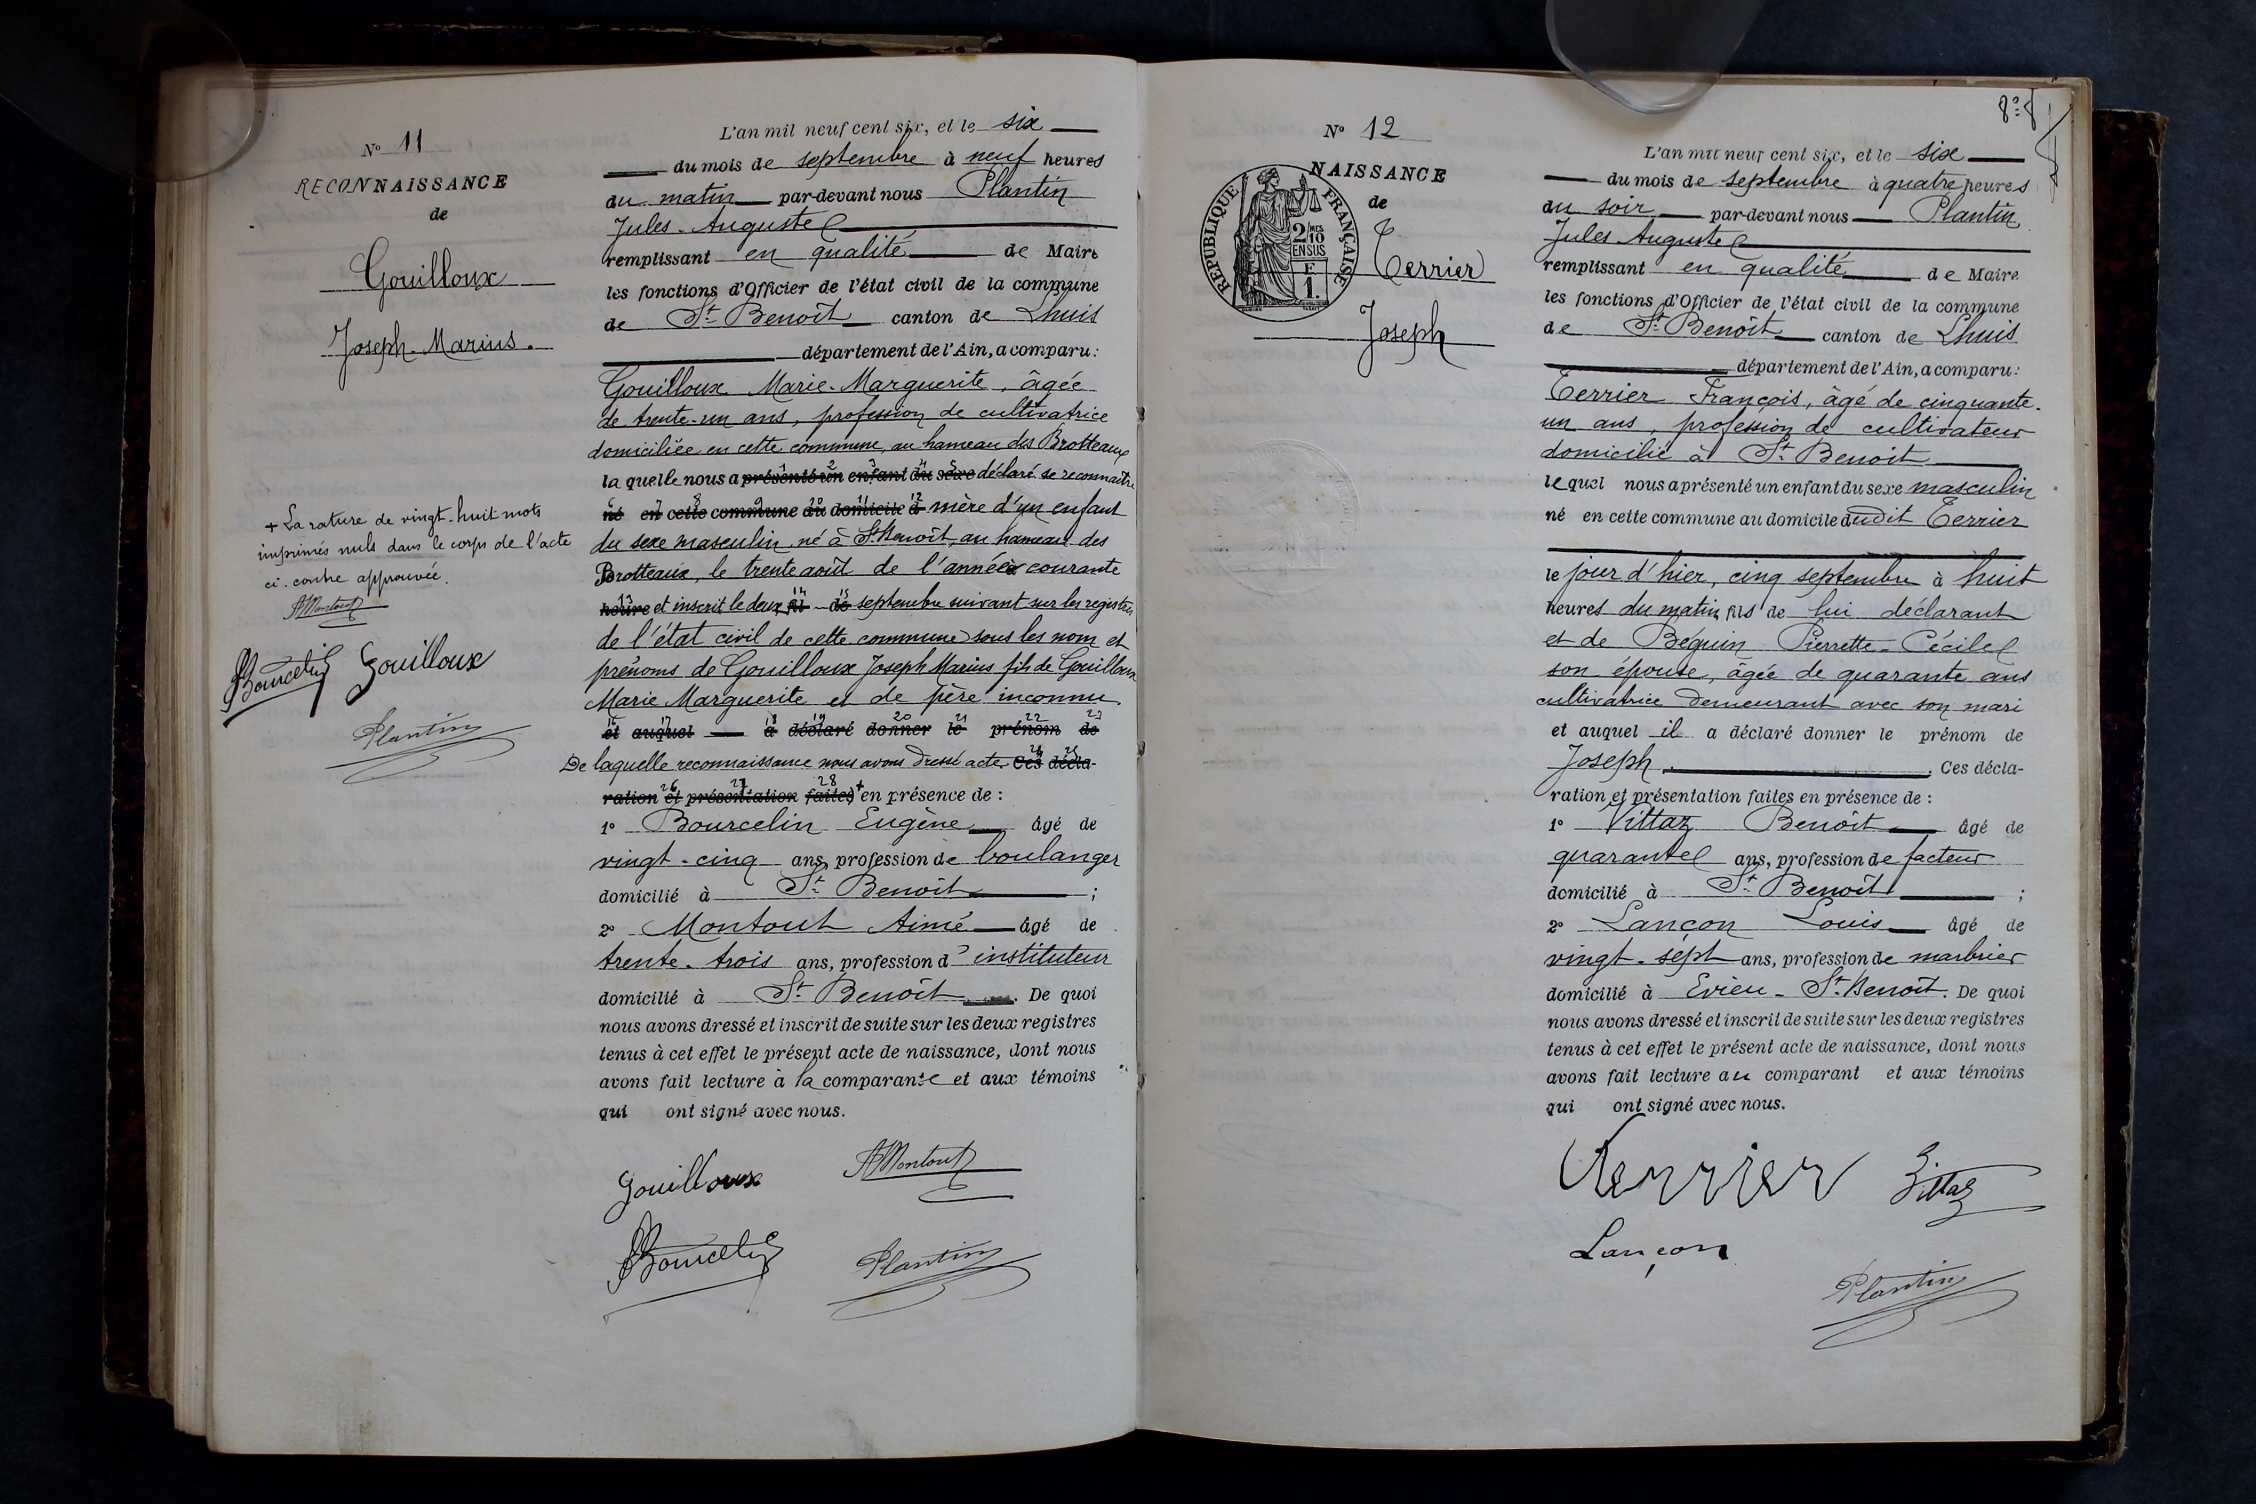 Nº 11
RECONNAISSANCE
de
Gouilloux
Joseph-Marius.
+ La rature de vingt-huit mots
imprimés nuls dans le corps de l'acte
ci-contre approuvée.
AMontout
Bourcelin Gouilloux
Plantin
L'an mil neuf cent six, et le six
du mois de septembre à neuf heures
du matin par-devant nous Plantin
Jules-Auguste
remplissant en qualité de Maire
les fonctions d'Officier de l'état civil de la commune
de St Benoît canton de Lhuis
département de l'Ain, a comparu:
Gouilloux Marie-Marguerite, âgée
de trente-un ans, profession de cultivatrice
domiciliée en cette commune, au hameau des Brotteaux
la quelle nous a présenté un enfant du sexe déclaré se reconnaître
né en cette commune au domicile d mère d'un enfant
du sexe masculin né à St-Benoît, au hameau des
Brotteaux, le trente août de l'année courante
heure et inscrit le deux fil de septembre suivant sur les registres
de l'état civil de cette commune sous les nom et
prénoms de Gouilloux Joseph Marius fils de Gouilloux
Marie Marguerite et de père inconnu.
et auquel a déclaré donner le prénom de
De laquelle reconnaissance nous avons dressé acte. Ces décla-
ration et présentation faites + en présence de :
1º Bourcelin Eugène âgé de
vingt-cinq ans, profession de boulanger
domicilié à St Benoît ;
2º Montout Aimé âgé de
trente-trois ans, profession d'instituteur
domicilié à St Benoît. De quoi
nous avons dressé et inscrit de suite sur les deux registres
tenus à cet effet le présent acte de naissance, dont nous
avons fait lecture à la comparante et aux témoins
qui ont signé avec nous.
Gouilloux AMontout
Bourcelin Plantin
8
Nº 12
NAISSANCE
de
Terrier
Joseph
RÉPUBLIQUE FRANÇAISE
2/10
EN SUS
F
1.
L'an mil neuf cent six, et le six
du mois de septembre à quatre heures
du soir par-devant nous Plantin
Jules Auguste
remplissant en qualité de Maire
les fonctions d'Officier de l'état civil de la commune
de St Benoît canton de Lhuis
département de l'Ain, a comparu:
Terrier François, âgé de cinquante-
un ans, profession de cultivateur
domicilié à St Benoît
lequel nous a présenté un enfant du sexe masculin
né en cette commune au domicile dudit Terrier
le jour d'hier, cinq septembre à huit
heures du matin, fils de lui déclarant
et de Béguin Pierrette-Cécile
son épouse, âgée de quarante ans
cultivatrice demeurant avec son mari
et auquel il a déclaré donner le prénom de
Joseph. Ces décla-
ration et présentation faites en présence de :
1º Vittaz Benoît âgé de
quarante ans, profession de facteur
domicilié à St Benoît ;
2º Lançon Louis âgé de
vingt-sept ans, profession de marbrier
domicilié à Evieu-St-Benoît. De quoi
nous avons dressé et inscrit de suite sur les deux registres
tenus à cet effet le présent acte de naissance, dont nous
avons fait lecture au comparant et aux témoins
qui ont signé avec nous.
Terrier Vittaz
Lançon
Plantin